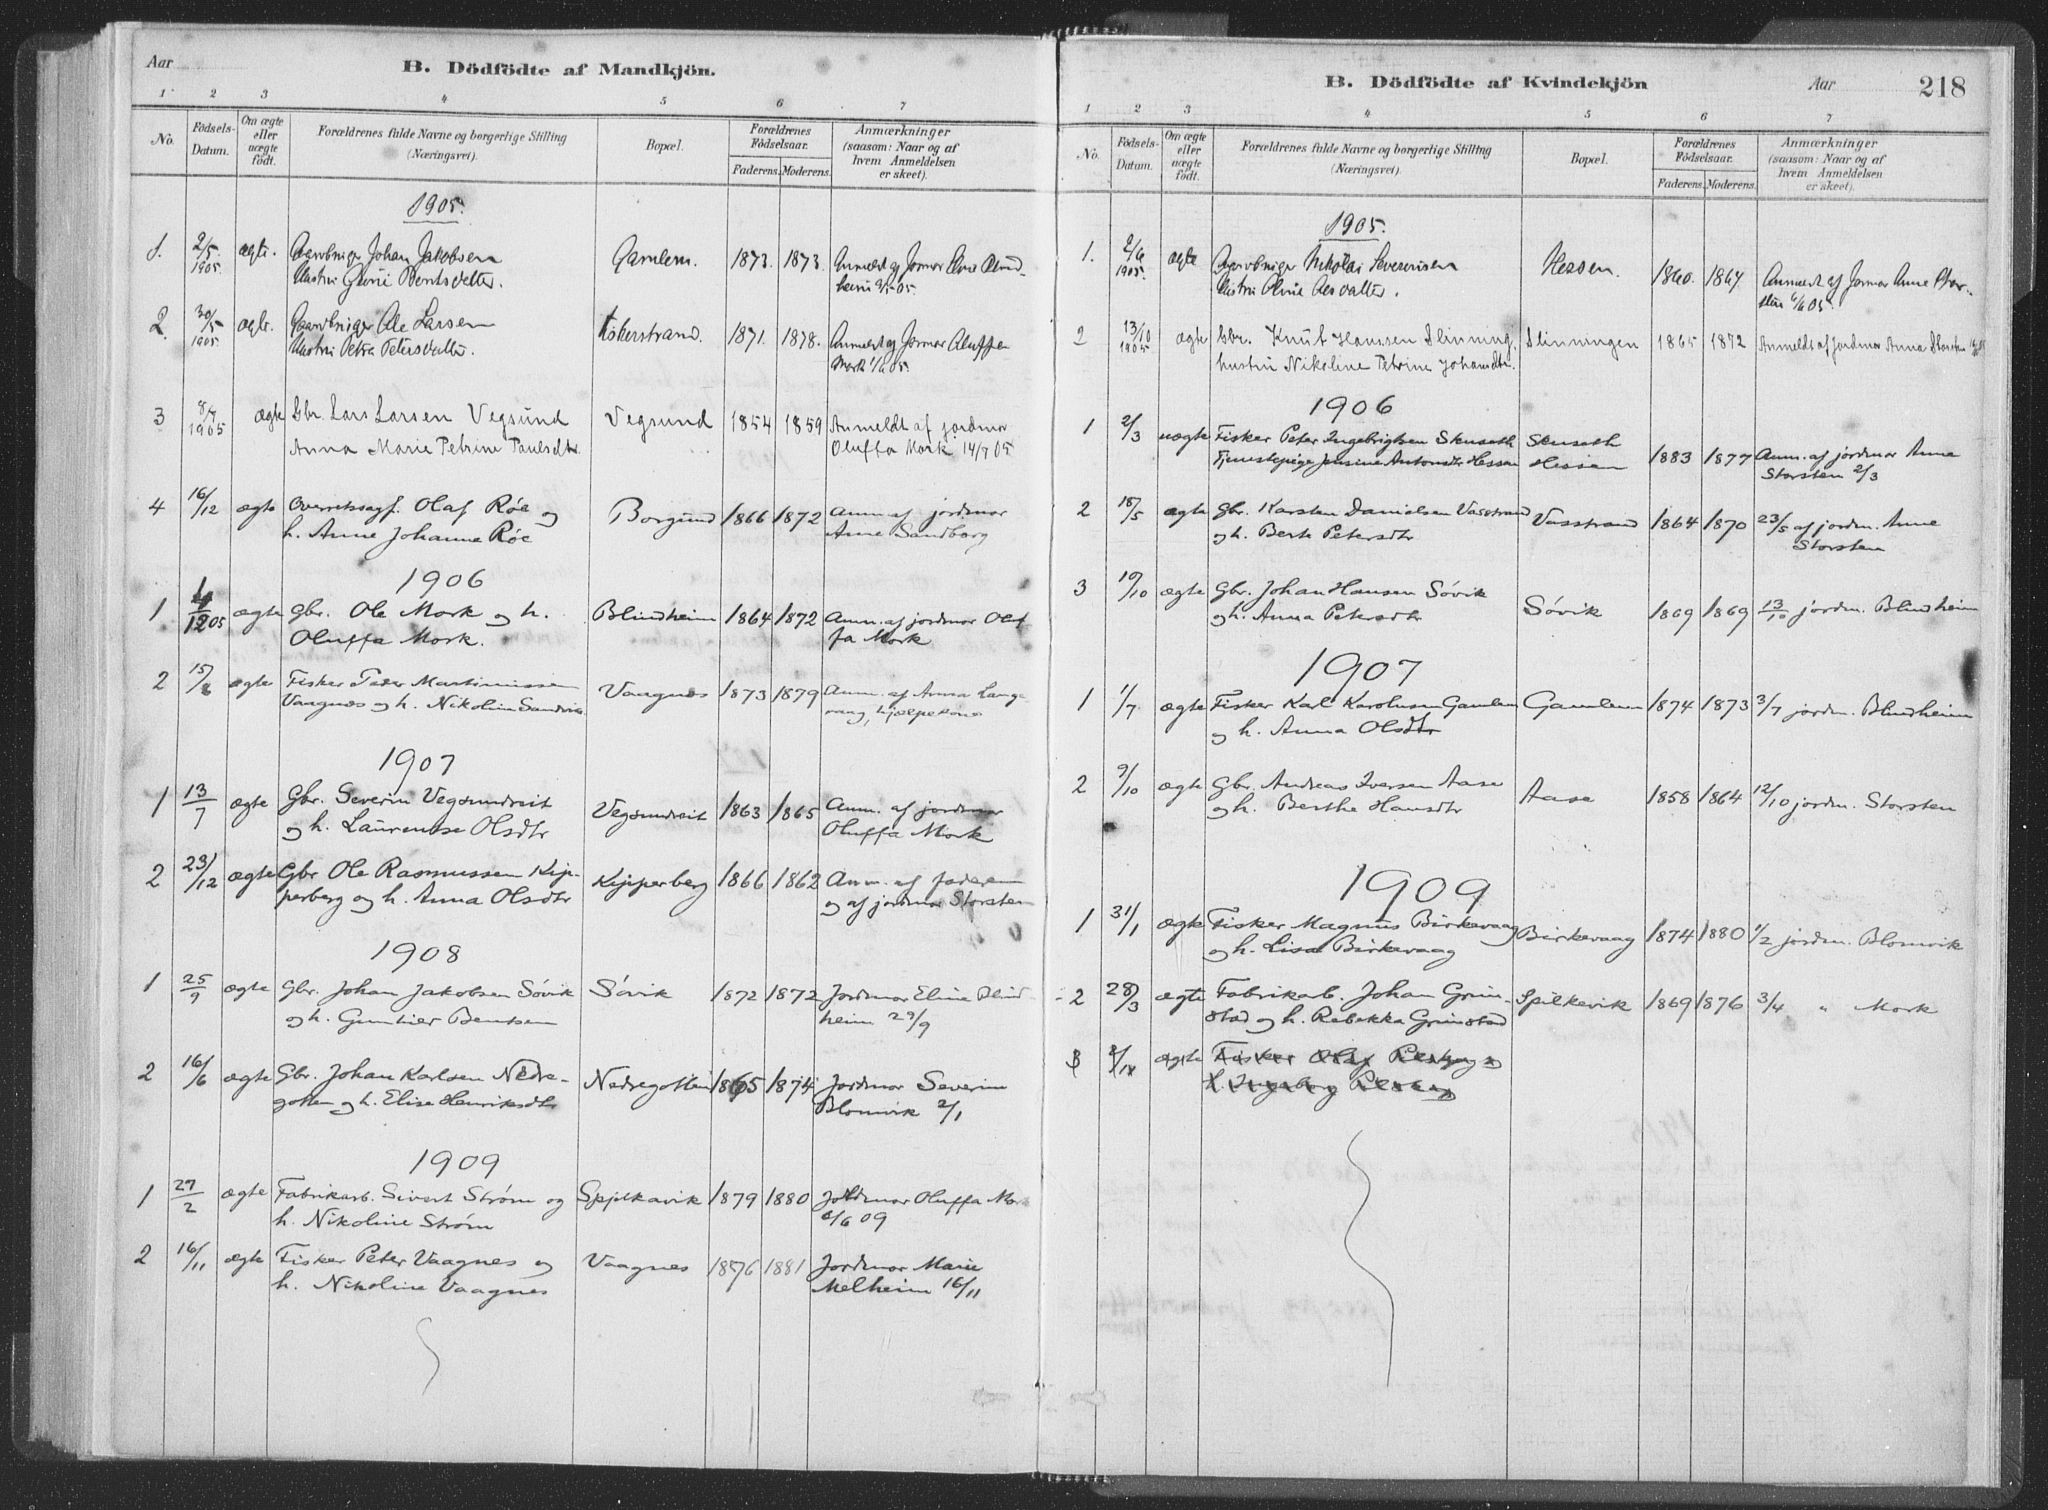 Aar
B. Dödfödte af Mandkjön.
1 2 3 4 5 6 7
No.
Födsels-
Datum.
Om ægte
eller
uægte
födt.
Forældrenes fulde Navne og borgerlige Stilling
(Næringsvei).
Bopæl.
Forældrenes
Födselsaar.
Faderens. Moderens.
Anmærkninger
(saasom: Naar og af
hvem Anmeldelsen
er skeet).
1905.
1. 2/5 1905. ægte. Gaardbruger Johan Jakobsen
Hustru Bentsdatter. Gamlem. 1873. 1873. Anmeldt af Jormor
2 30/5 1905 ægte. Gaardbruger Ole Larsen
Hustru Petra Petersdatter. 1871. 1878. Anmeldt af Jormor Oluffa
Mork 1/6 05.
3 8/7 1905 ægte Gbr. Lars Larsen Vegsund
Anna Marie Petrine Paulsdtr Vegsund 1854 1859 Anmeldt af jordmor
Oluffa Mork 14/7 05
4 16/12 ægte Overretssagf. Olaf Röe og
h. Anne Johanne Röe Borgund 1866 1872 Anm. af jordmor
Anne Sandborg
1906
1 4/12 05 ægte Gbr. Ole Mork og h.
Oluffa Mork. Blindheim 1864 1872 Anm. af jordmor Oluf-
fa Mork
2 15/8 ægte Fisker Peder Martinussen
Vaagnes og h. Nikoline Sandvik Vaagnes 1873 1879 Anm. af Anna Lange
vaag, hjælpekone
1907
1 13/7 ægte Gbr. Severin Vegsundreit
og h. Laurentse Olsdtr Vegsundreit 1863 1865 Anm. af jordmor
Oluffa Mork
2 23/12 ægte Gbr Ole Rasmussen Kip-
perberg og h. Anna Olsdtr Kipperberg 1866 1862 Anm. af faderen
og af jordmor Storsten
1908
1 25/9 ægte Gbr. Johan Jakobsen Sövik
og h. Bentsen Sövik 1872 1872 Jordmor Eline Blind
heim 29/9
2 16/6 ægte Gbr. Johan Karlsen Nedre-
gotten og h. Elise Henriksdtr Nedregotten 1865 1874 Jordmor Severine
Blomvik 2/1
1909
1 27/2 ægte Fabrikarb. Sivert Ström og
h. Nikoline Ström Spjelkavik 1879 1880 Jordmor Oluffa Mork
6/6 09
2 16/11 ægte Fisker Peter Vaagnes og
h. Nikoline Vaagnes Vaagnes 1876 1881 Jordmor Marie
Melheim 16/11
B. Dödfödte af Kvindekjön
Aar 218
1 2 3 4 5 6 7
No.
Födsels-
Datum.
Om ægte
eller
uægte
födt.
Forældrenes fulde Navne og borgerlige Stilling
(Næringsvei).
Bopæl.
Forældrenes
Födselsaar.
Faderens. Moderens.
Anmærkninger
(saasom: Naar og af
hvem Anmeldelsen
er skeet).
1905.
1. 2/6 1905. ægte Gaardbruger Nikolai Severinsen
Hustru Olsdatter. Hessen. 1860. 1867 Anmeldt af Jormor Anne Stor-
sten 6/6 05.
2 13/10 1905 ægte Gbr. Knut Hansen Slinning,
hustru Nikoline Petrine Johansdtr. Slinningen 1865 1872 Anmeldt af jordmor Anna Storsten
1906
1 2/3 uægte Fisker Peter Ingebrigtsen Skuseth
Tjenestepige Jensine Antonsdtr Hessen Skuseth
Hessen 1883 1877 Anm. af jordmor Anne
Storsten 2/3
2 18/5 ægte Gbr. Karsten Danielsen Vasstrand
og h. Berte Petersdtr Vasstrand 1864 1870 23/5 af jordm. Anne
Storsten
3 10/10 ægte Gbr. Johan Hansen Sövik
og h. Anna Petersdtr Sövik 1869 1869 13/10 jordm. Blindheim
1907
1 1/7 ægte Fisker Karl Karolusen Gamlem
og h. Anna Olsdtr Gamlem 1874 1873 3/7 jordm. Blindheim
2 9/10 ægte Gbr. Andreas Iversen Aase
og h. Berthe Hansdtr Aase 1858 1864 12/10 jordm. Storsten
1909
1 31/1 ægte Fisker Magnus Birkevaag
og h. Lisa Birkevaag Birkevaag 1874 1880 1/2 jordm. Blomvik
2 28/3 ægte Fabrikarb. Johan Grim-
stad og h. Rebekka Grimstad Spilkevik 1869 1876 3/4 " Mork
3 ægte Fisker Olaf
h. Ingeborg